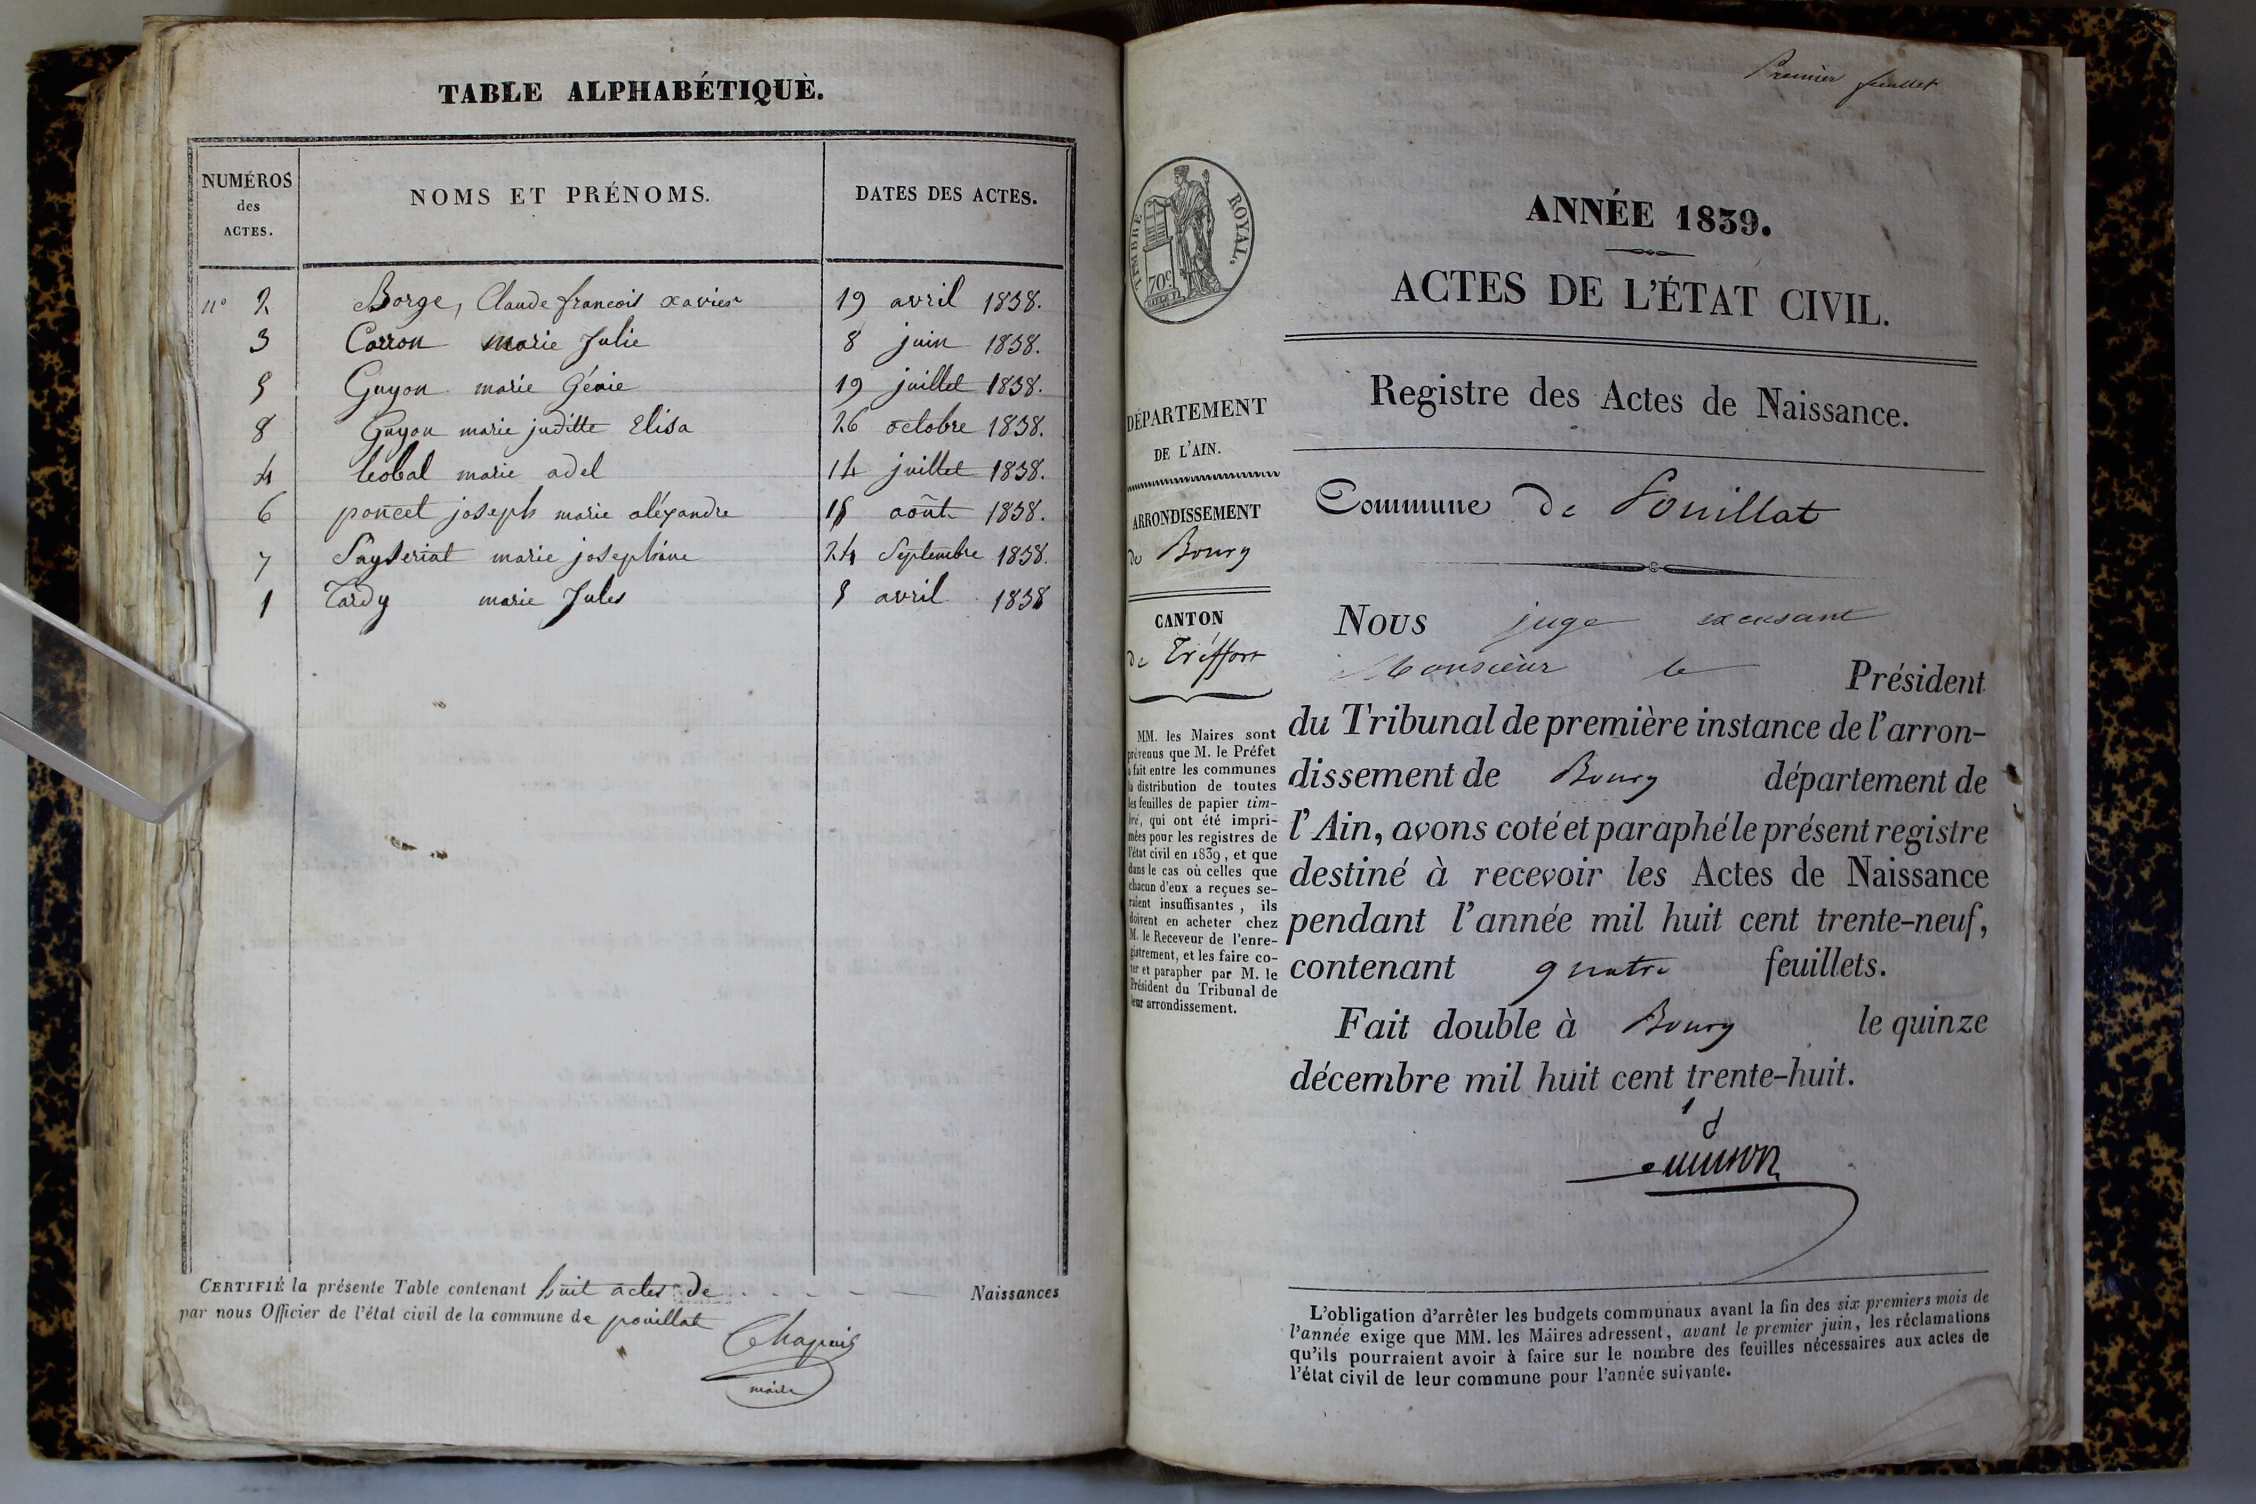 TABLE ALPHABÉTIQUE.
NUMÉROS
des
ACTES.
NOMS ET PRÉNOMS.
DATES DES ACTES.
n° 2 Borge, Claude francois xavier 19 avril 1838.
3 Carron marie Julie 8 juin 1838.
5 Guyon marie Génie 19 juillet 1838.
8 Guyon marie juditte Elisa 26 octobre 1838.
4 marie adel 14 juillet 1838.
6 poncet joseph marie aléxandre 15 août 1838.
7 marie josephine 24 Septembre 1838.
1 Tardy marie Jules 5 avril 1838
CERTIFIÉ la présente Table contenant huit actes de Naissances
par nous Officier de l'état civil de la commune de pouillat
Chapuis
maire
Premier feuillet
TIMBRE ROYAL.
70c.
ANNÉE 1839.
ACTES DE L'ÉTAT CIVIL.
Registre des Actes de Naissance.
DÉPARTEMENT
DE L'AIN.
ARRONDISSEMENT
de Bourg
CANTON
de Tréffort
MM. les Maires sont
prévenus que M. le Préfet
a fait entre les communes
la distribution de toutes
les feuilles de papier tim-
bré, qui ont été impri-
mées pour les registres de
l'état civil en 1839, et que
dans le cas où celles que
chacun d'eux a reçues se-
raient insuffisantes, ils
doivent en acheter chez
M. le Receveur de l'enre-
gistrement, et les faire co-
ter et parapher par M. le
Président du Tribunal de
leur arrondissement.
Commune de Pouillat
Nous juge excusant
Monsieur le Président
du Tribunal de première instance de l'arron-
dissement de Bourg département de
l'Ain, avons coté et paraphé le présent registre
destiné à recevoir les Actes de Naissance
pendant l'année mil huit cent trente-neuf,
contenant quatre feuillets.
Fait double à Bourg le quinze
décembre mil huit cent trente-huit.
L'obligation d'arrêter les budgets communaux avant la fin des six premiers mois de
l'année exige que MM. les Maires adressent, avant le premier juin, les réclamations
qu'ils pourraient avoir à faire sur le nombre des feuilles nécessaires aux actes de
l'état civil de leur commune pour l'année suivante.